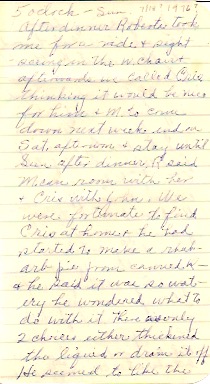 5 oclock - Sun 7/18' 1976?
After dinner Roberta took
me for a ride & sight
seeing on the W.
afterwards we called Cris
thinking it would be nice
for him & M. to come
down next week end on
Sat. afternoon & stay until
Sun after dinner. R. said
M can room with her
& Cris with John. We
were fortunate to find
Cris at home & he had
started to make a rhub-
arb pie from canned R-
& he said it was so wat-
ery he wondered what to
do with it. There was only
2 choices either thickened
the liquid or drain it off
He seemed to like the